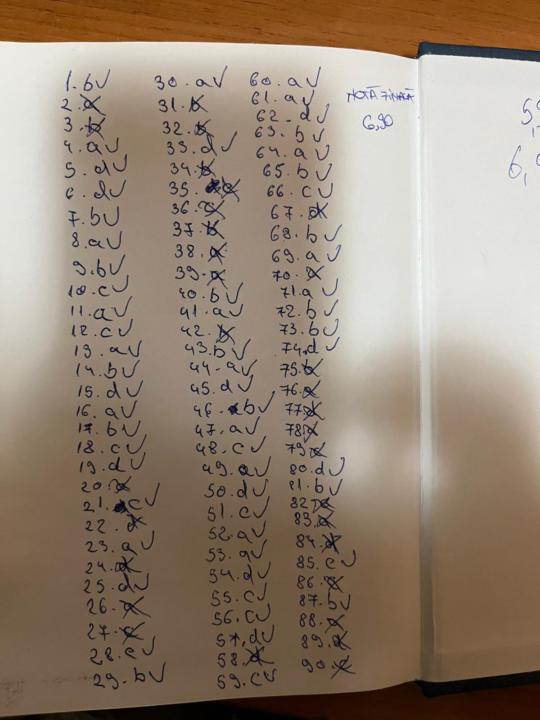 1. b ✓
2. a
3. b
4. a ✓
5. d ✓
6. d ✓
7. b ✓
8. a ✓
9. b ✓
10. c ✓
11. a ✓
12. c ✓
13. a ✓
14. b ✓
15. d ✓
16. a ✓
17. b ✓
18. c ✓
19. d ✓
20.
21. c ✓
22. d
23. a ✓
24.
25. d ✓
26. a
27.
28. c ✓
29. b ✓
30. a ✓
31. b
32. b
33. d ✓
34. b
35. c
36. c
37. b
38. a
39. a
40. b ✓
41. a ✓
42. b
43. b ✓
44. a ✓
45. d ✓
46. b ✓
47. a ✓
48. c ✓
49. a ✓
50. d ✓
51. c ✓
52. a ✓
53. a ✓
54. d ✓
55. c ✓
56. c ✓
57. d ✓
58.
59. c ✓
60. a ✓
61. a ✓
62. d ✓
63. b ✓
64. a ✓
65. b ✓
66. c ✓
67.
68. b ✓
69. a ✓
70.
71. a ✓
72. b ✓
73. b ✓
74. d ✓
75. b
76. a
77. d
78.
79.
80. d ✓
81. b ✓
82.
83.
84.
85. c ✓
86.
87. b ✓
88.
89.
90.
NOTĂ FINALĂ
6,90